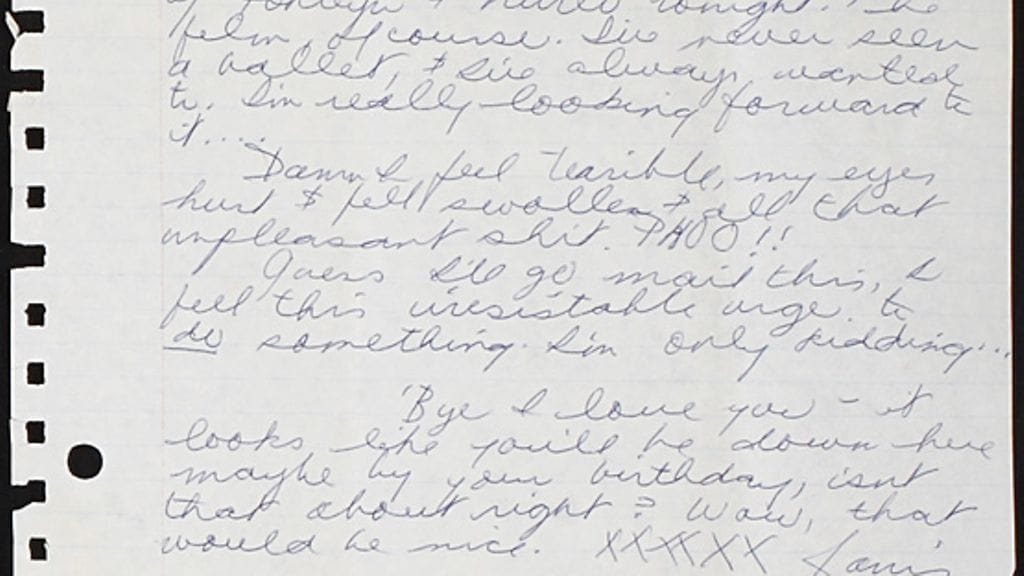 of Fonteyn & Nureev tonight. The
film, of course. I've never seen
a ballet, & I've always wanted
to. I'm really looking forward to
it....
Damn I feel terrible, my eyes
hurt & fell swollen & all that
unpleasant shit. PHOO!!
Guess I'll go mail this, I
feel this irresistable urge to
do something. I'm only kidding...
'Bye I love you – it
looks like you'll be down here
maybe by your birthday, isn't
that about right? Wow, that
would be nice. XXXXXX Janis